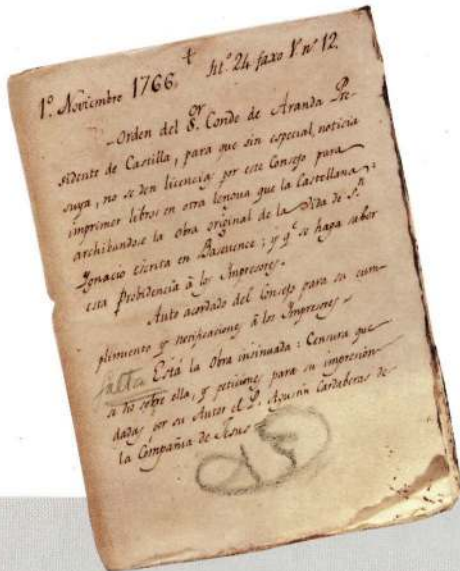 1º. Noviembre 1766. ttº. 24 faxo 1º. nº 12.
Orden del Sºr. Conde de Aranda Pre-
sidente de Castilla, para que sin especial noticia
suya, no se den licencias por este Consejo para
imprimir libros en otra lengua que la Castellana:
archibandose la obra original de la Vida de Sn.
Ygnacio escrita en Bascuence; y qe. se haga saber
esta Probidencia à los Impresores.
Auto acordado del Consejo para su cum-
plimiento y notificaciones à los Impresores.
falta Està la Obra insinuada: Censura que
se dio sobre ella, y peticiones para su impresión
dadas por su Autor el P. Agustin Cardaberas de
la Compañia de Jesus